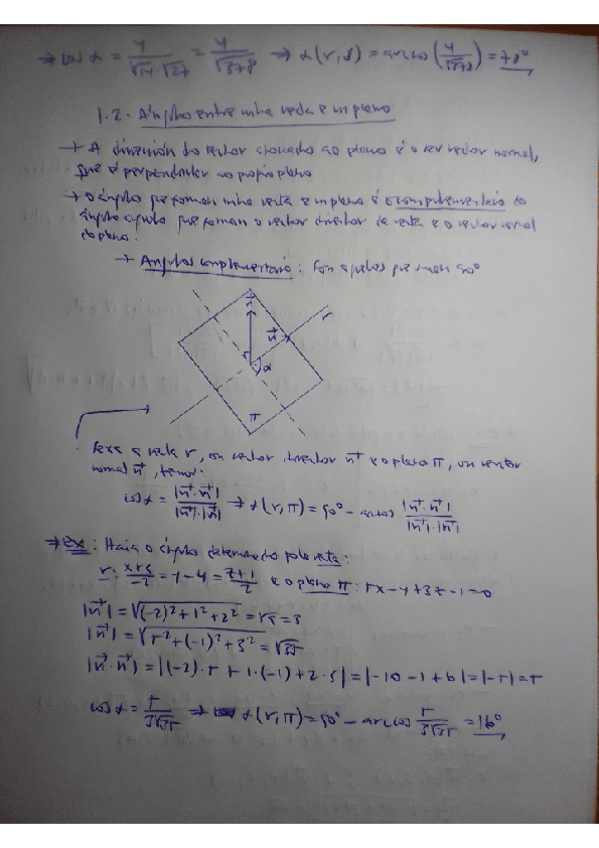 → cos α = 4/(√14·√27) = 4/√378 ⇒ α(r,s) = arccos(4/√378) = 78°
1.2. Ángulos entre unha recta e un plano
→ A dirección do vector asociado ao plano é o seu vector normal,
que é perpendicular ao propio plano
→ O ángulo que forman unha recta e un plano é o complementario do
ángulo agudo que forman o vector director da recta e o vector normal
do plano.
→ Ángulos complementarios: Son aqueles que suman 90°
r
α
π
Sexa a recta r, un vector director u⃗ e o plano π, un vector
normal n⃗, temos:
cos α = |u⃗·n⃗|/(|u⃗|·|n⃗|) ⇒ α(r,π) = 90° − arccos |u⃗·n⃗|/(|u⃗|·|n⃗|)
⇒ Ex: Halla o ángulo determinado pola recta:
r: (x+3)/−2 = y−4 = (z+1)/2 e o plano π: 5x−y+3z−1=0
|u⃗| = √((−2)²+1²+2²) = √9 = 3
|n⃗| = √(5²+(−1)²+3²) = √35
|u⃗·n⃗| = |(−2)·5+1·(−1)+2·3| = |−10−1+6| = |−5| = 5
cos α = 5/(3√35) ⇒ α(r,π) = 90° − arccos 5/(3√35) = 16°